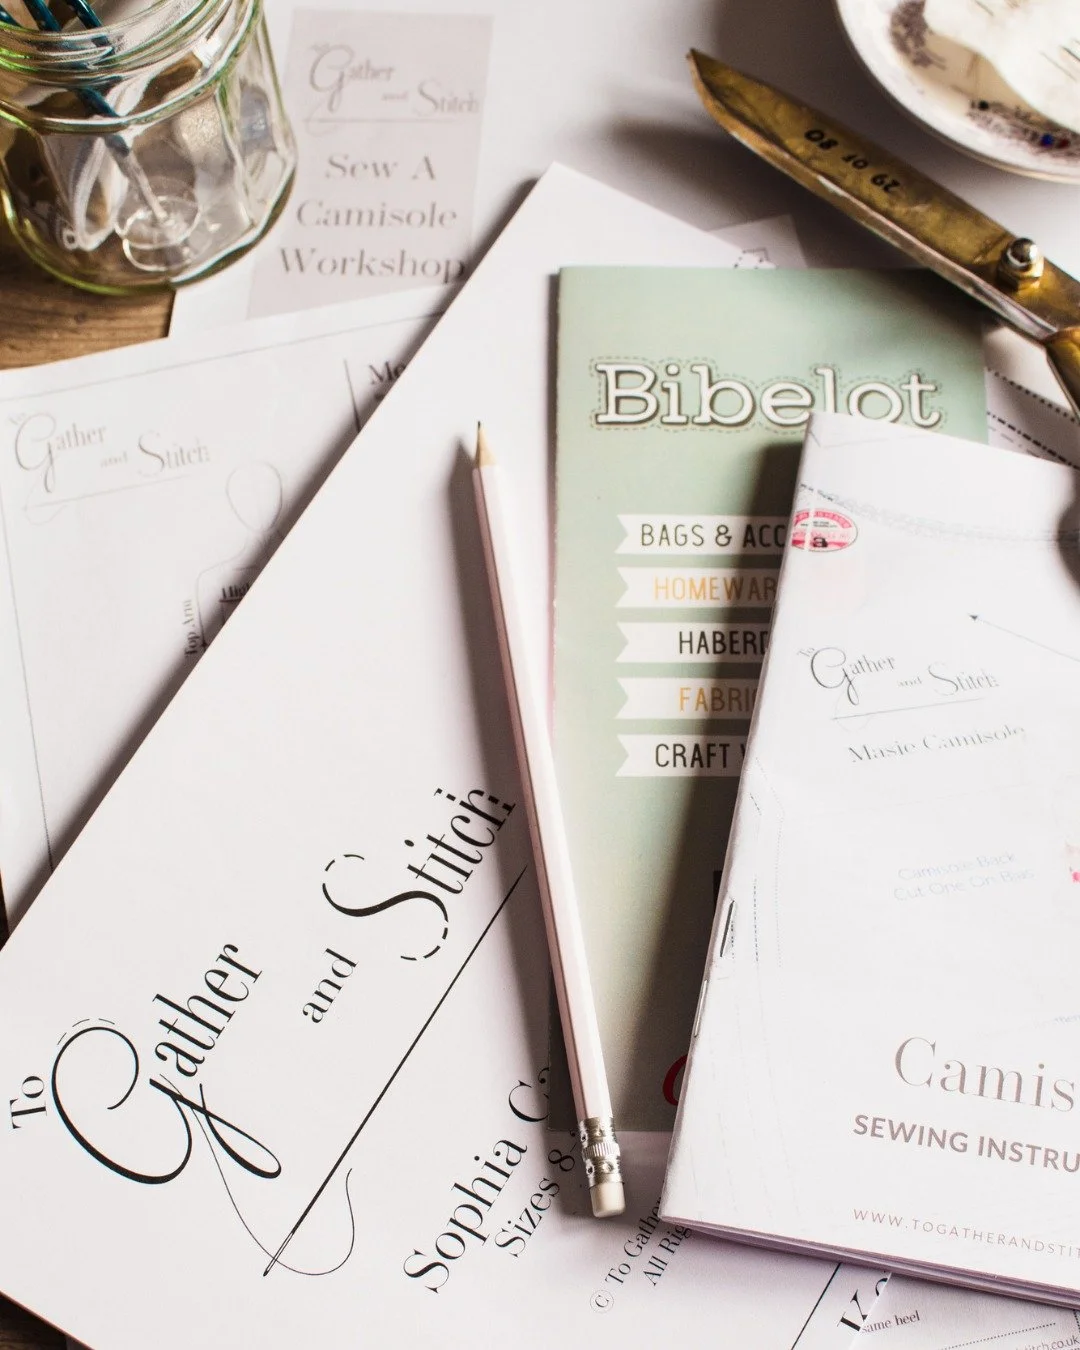 To Gather
and Stitch
Sew A
Camisole
Workshop
29 OF 80
To Gather
and Stitch
Top Arm
Bibelot
BAGS & ACC
HOMEWAR
HABERD
FABRI
CRAFT
To Gather
and Stitch
Masie Camisole
Camisole Back
Cut One On Bias
Camis
SEWING INSTRU
WWW.TOGATHERANDSTIT
To Gather
and Stitch
Sophia Ca
Sizes 8-
© To Gather
All Rig
same heel